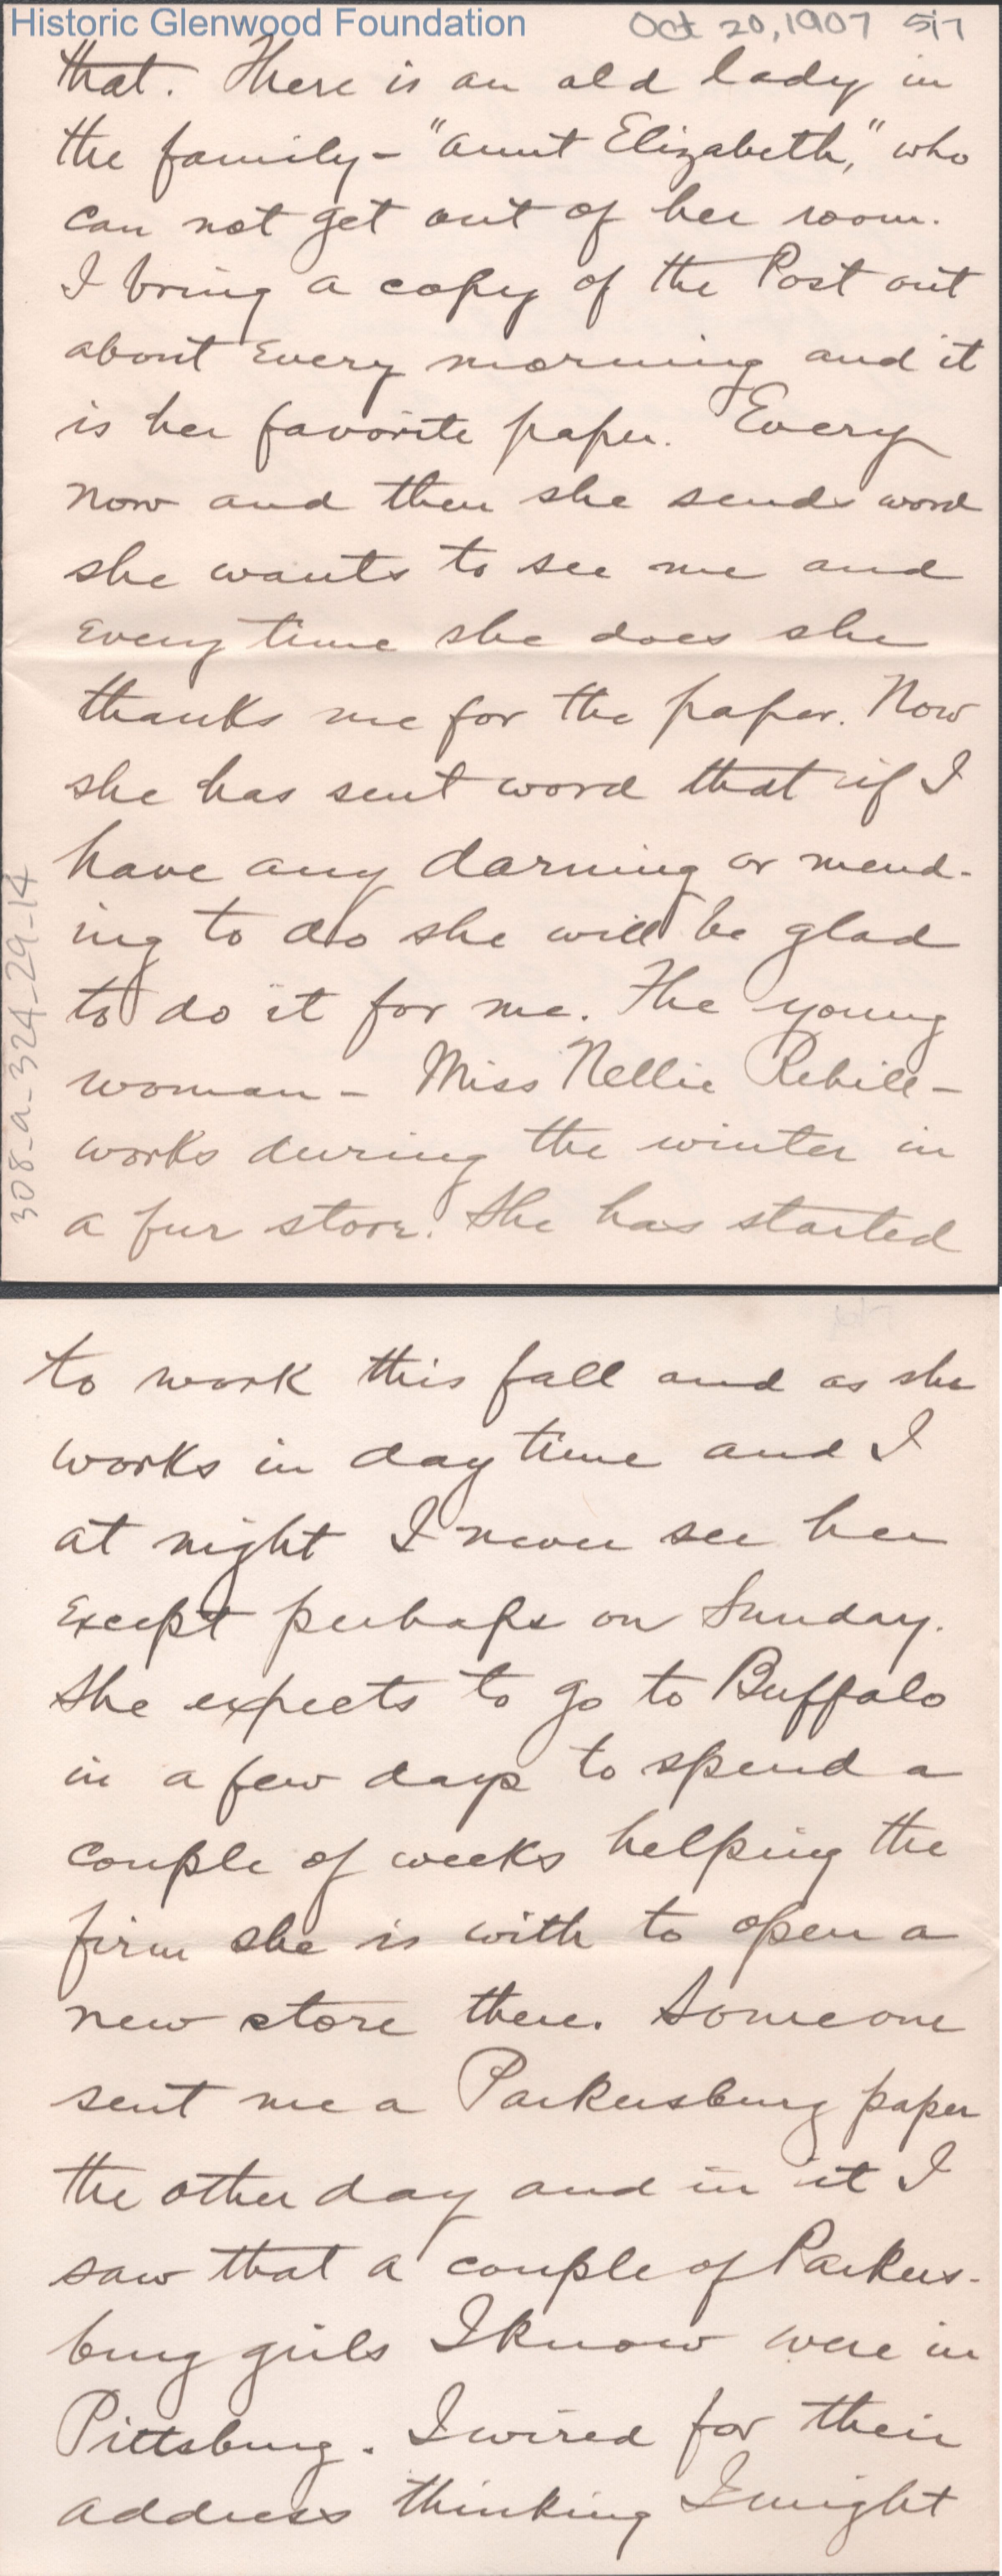 Historic Glenwood Foundation
Oct 20, 1907 5/7
that. There is an old lady in
the family - "Aunt Elizabeth," who
can not get out of her room.
I bring a copy of the Post out
about every morning and it
is her favorite paper. Every
now and then she sends word
she wants to see me and
every time she does she
thanks me for the paper. Now
she has sent word that if I
have any darning or mend-
ing to do she will be glad
to do it for me. The young
woman - Miss Nellie Rehill -
works during the winter in
a fur store. She has started
308-a-324-29-14
to work this fall and as she
works in day time and I
at night I never see her
except perhaps on Sunday.
She expects to go to Buffalo
in a few days to spend a
couple of weeks helping the
firm she is with to open a
new store there. Someone
sent me a Parkersburg paper
the other day and in it I
saw that a couple of Parkers-
burg girls I know were in
Pittsburg. I wired for their
address thinking I might